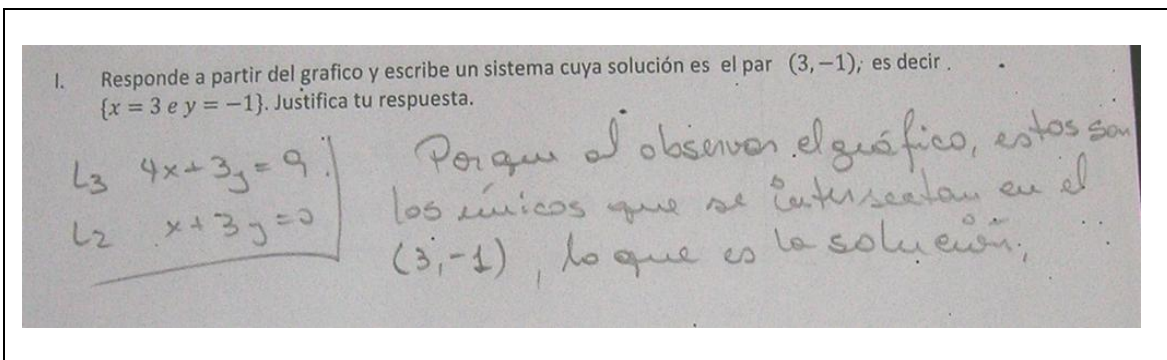 I. Responde a partir del grafico y escribe un sistema cuya solución es el par (3,−1), es decir.
{x = 3 e y = −1}. Justifica tu respuesta.
L3 4x+3y=9
L2 x+3y=0
Porque al observar el gráfico, estos son
los únicos que se intersectan en el
(3,-1), lo que es la solución.